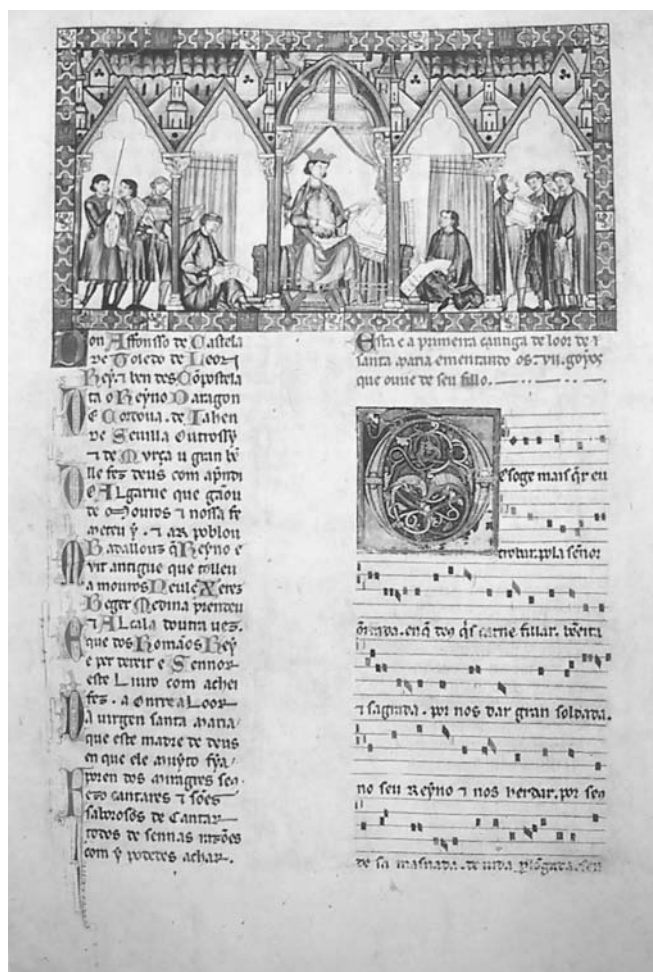 Don Affonsso de Castela
de Toledo de Leon ⁊
Rey ⁊ ben des Cõpostela
ta o Reyno Daragon
De Cordoua. de Iahen
de Seuilla outrossy
⁊ de Murça u gran bẽ
lle fez deus com apndi
O Algarue que gãou
de Mouros ⁊ nossa fe
meteu y. ⁊ ar poblou
Badallouz q̃ Reyno e
Mui antigue que tolleu
a mouros Neule Xerez
Beger Medina prendeu
⁊ Alcala doutra uez.
E que dos Romãos Rey
e per dereit e Sennor
este Liuro com achei
fez. a Onrr e a Loor
Da uirgen santa Maria
que este madre de deus
en que ele muyto fya
poren dos miragres seu
Fezo cantares ⁊ sões
saborosos de Cantar
todos de sennas razões
com y podedes achar.
Esta e a primeira cantiga de loor de
santa Maria ementando os. uii. goyos
que ouue de seu fillo.
Des oge mais q̃r eu
trobar. pola señor
onrrada. en q̃ deus q̃s carne fillar. bẽeita
⁊ sagrada. por nos dar gran soldada.
no seu Reyno ⁊ nos herdar. por seus
de sa masnada. de uida plõgada. sen